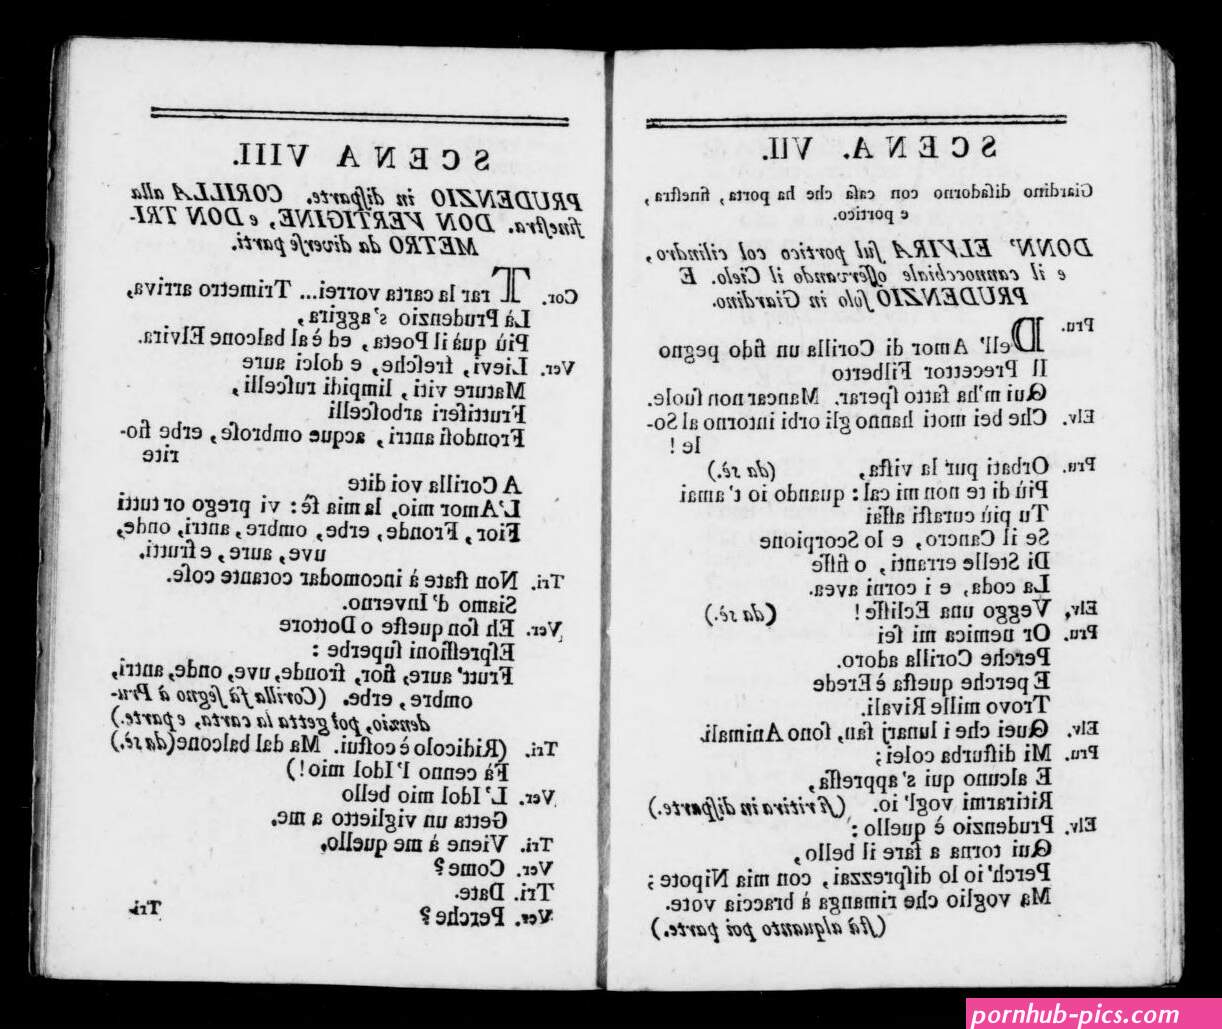 SCENA. VII.
Giardino disadorno con casa che ha porta, finestra,
e portico.
DONN' ELVIRA sul portico col cilindro,
e il cannocchiale osservando il Cielo. E
PRUDENZIO solo in Giardino.
Pru. Dell' Amor di Corilla un fido pegno
Il Precettor Filberto
Qui m'ha fatto sperar. Mancar non suole.
Elv. Che bei moti hanno gli orbi intorno al So-
le!
Pru. Orbati pur la vista, (da sè.)
Più di te non mi cal: quando io t'amai
Tu più curasti assai
Se il Cancro, e lo Scorpione
Di Stelle erranti, o fisse
La coda, e i corni avea.
Elv. Veggo una Eclisse! (da sè.)
Pru. Or nemica mi sei
Perche Corilla adoro.
E perche questa è Erede
Trovo mille Rivali.
Elv. Quei che i lunarj fan, sono Animali.
Pru. Mi disturba colei;
E alcuno qui s'appressa,
Ritirarmi vogl' io. (si ritira in disparte.)
Elv. Prudenzio è quello:
Qui torna a fare il bello,
Perch' io lo disprezzai, con mia Nipote;
Ma voglio che rimanga à braccia vote.
(stà alquanto poi parte.)
SCENA VIII.
PRUDENZIO in disparte. CORILLA alla
finestra. DON VERTIGINE, e DON TRI-
METRO da diverse parti.
Cor. Tirar la carta vorrei... Trimetro arriva,
Là Prudenzio s'aggira,
Più quà il Poeta, ed è al balcone Elvira.
Ver. Lievi, fresche, e dolci aure
Mature viti, limpidi ruscelli,
Fruttiferi arboscelli
Frondosi antri, acque ombrose, erbe fio-
rite
A Corilla voi dite
L'Amor mio, la mia fè: vi prego or tutti
Fior, Fronde, erbe, ombre, antri, onde,
uve, aure, e frutti.
Tri. Non state à incomodar cotante cose.
Siamo d'Inverno.
Ver. Eh son queste o Dottore
Espressioni superbe:
Frutt' aure, fior, fronde, uve, onde, antri,
ombre, erbe. (Corilla fà segno à Pru-
denzio, poi getta la carta, e parte.)
Tri. (Ridicolo è costui. Ma dal balcone (da sè.)
Fà cenno l'Idol mio!)
Ver. L'Idol mio bello
Getta un viglietto a me.
Tri. Viene à me quello.
Ver. Come?
Tri. Date.
Ver. Perche?
Tri.
pornhub-pics.com